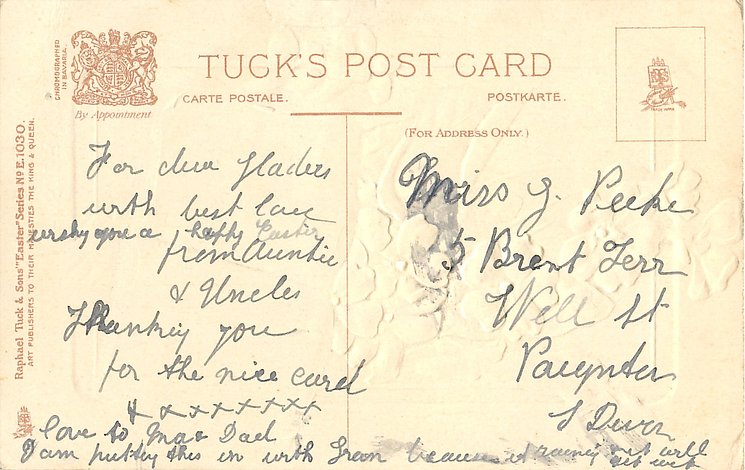 CHROMOGRAPHED
IN BAVARIA
By Appointment
TUCK'S POST CARD
CARTE POSTALE.
POSTKARTE.
(FOR ADDRESS ONLY.)
Raphael Tuck & Sons' "Easter" Series No E.1030.
ART PUBLISHERS TO THEIR MAJESTIES THE KING & QUEEN.
For dear Gladies
with best love
happy Easter
from Auntie
& Uncles
Thanking you
for the nice card
x x x x x x x x
love to Ma & Dad
I am putting this in with Gran because it rainey
Miss G. Peeke
5 Brent Terr
Well St
Paignton
S Devon